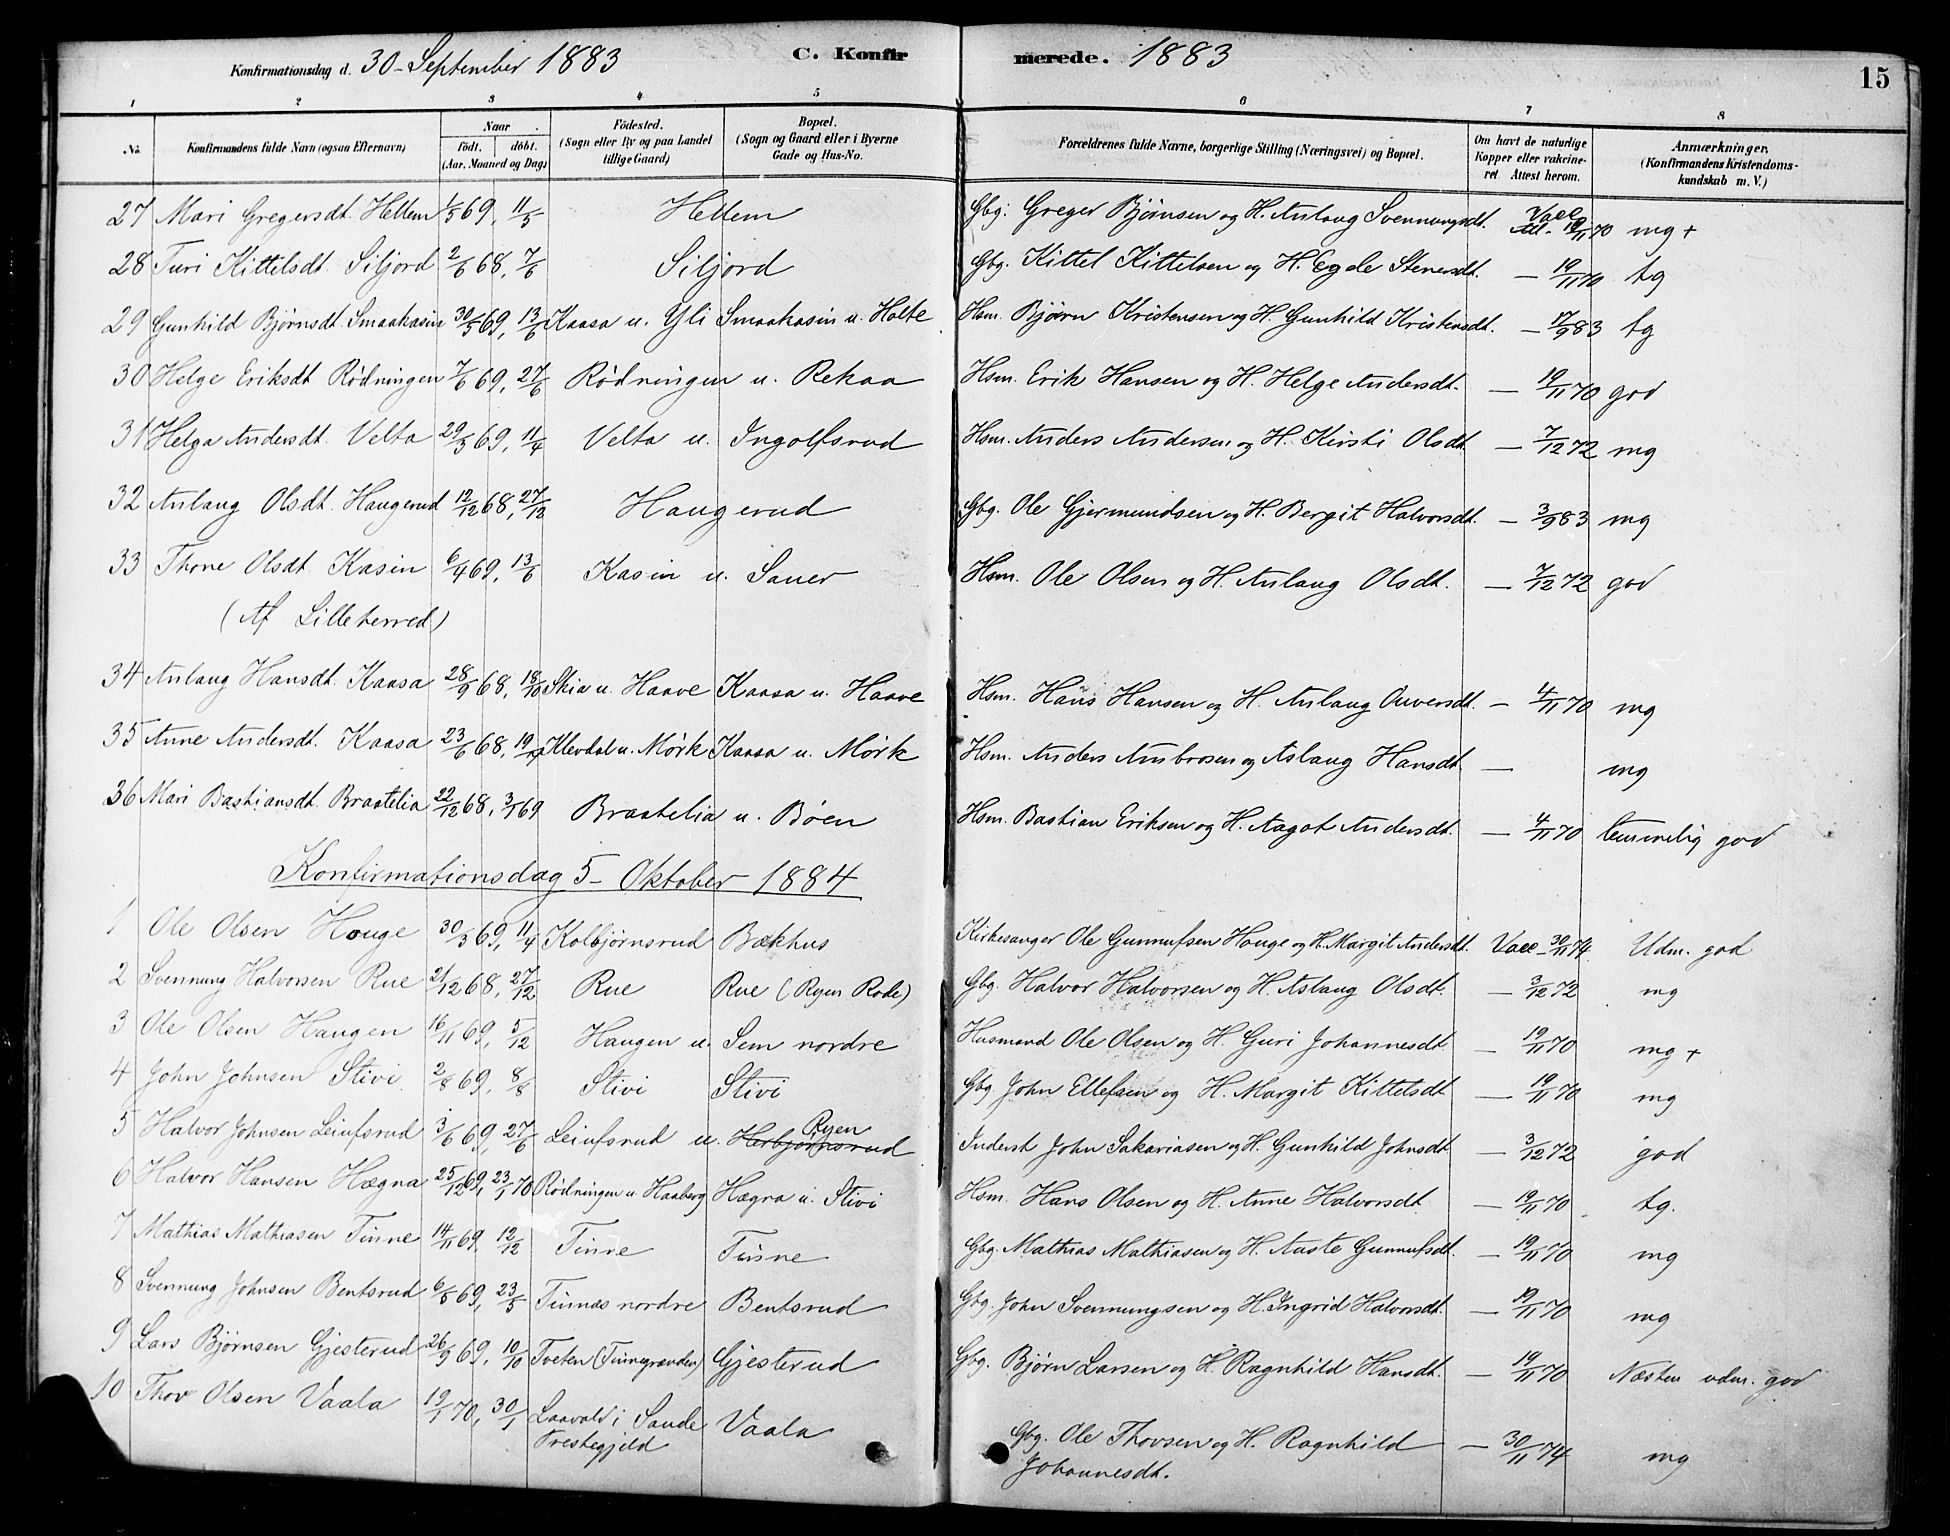 Konfirmationsdag d. 30 - September 1883 C. Konfirmerede. 1883 15
1 2 3 4 5 6 7 8
No. Konfirmandens fulde Navn (ogsaa Efternavn) Naar födt. döbt. (Aar, Maaned og Dag) Födested. (Sogn eller By og paa Landet tillige Gaard) Bopæl. (Sogn og Gaard eller i Byerne Gade og Hus-No. Forældrenes fulde Navne, borgerlige Stilling (Næringsvei) og Bopæl. Om havt de naturlige Kopper eller vakcineret Attest herom. Anmærkninger, (Konfirmandens Kristendomskundskab m. V.)
27 Mari Gregersdt. Hellem 1/5 69, 11/5 Hellem Gbg. Greger Bjørnsen og H. Aslaug Svennungsdt. Vacc 19/11 70 mg +
28 Turi Kittilsdt. Siljord 2/6 68, 7/6 Siljord Gbg. Kittel Kittelsen og H. Egele Stenersdt. — 19/11 70 tg
29 Gunhild Bjørnsdt. Smaakasin 30/5 69, 13/6 Kaasa u. Yli Smaakasin u. Holte Hsm. Bjørn Kristensen og H. Gunhild Kristensdt. — 17/9 83 tg
30 Helge Eriksdt Rödningen 7/6 69, 27/6 Rödningen u. Rekaa Hsm. Erik Hansen og H. Helge Andersdt. — 19/11 70 god
31 Helga Andersdt. Velta 29/3 69, 11/4 Velta u. Ingolfsrud Hsm. Anders Andersen og H. Kirsti Olsdt. — 7/12 72 mg
32 Aslaug Olsdt. Haugerud 12/12 68, 27/12 Haugerud Gbg. Ole Gjermundsen og H. Bergit Halvorsdt. — 3/9 83 mg
33 Thone Olsdt. Kasin 6/4 69, 13/6 Kasin u. Sauer Hsm. Ole Olsen og H. Aslaug Olsdt. — 7/12 72 god
(Af Lilleherred)
34 Aslaug Hansdt. Kaasa 28/9 68, 18/10 Skia u. Haave Kaasa u. Haave Hsm. Hans Hansen og H. Aslaug Auversdt. — 4/11 70 mg
35 Anne Andersdt. Kaasa 23/6 68, 19/7 Klevdal u. Mørk Kaasa u. Mørk Hsm. Anders Ambrosen og Aslaug Hansdt. — mg
36 Mari Bastiansdt. Braatelia 22/12 68, 3/1 69 Braatelia u. Böen Hsm. Bastian Eriksen og H. Aagot Andersdt. — 4/11 70 temmelig god
Konfirmationsdag 5 - Oktober 1884
1 Ole Olsen Houge 30/3 69, 11/4 Kolbjørnsrud Bækhus Kirkesanger Ole Gunnufsen Houge og H. Margit Andersdt. Vacc - 30/11 74 Udm. god
2 Svennung Halvorsen Rue 21/12 68, 27/12 Rue Rue (Ryen Rode) Gbg. Halvor Halvorsen og H. Aslaug Olsdt. — 3/12 72 mg
3 Ole Olsen Haugen 16/11 69, 5/12 Haugen u. Sem nordre Husmand Ole Olsen og H. Guri Johannesdt. — 19/11 70 mg +
4 John Johnsen Stivi 2/8 69, 8/8 Stivi Stivi Gbg. John Ellefsen og H. Margit Kittelsdt. — 19/11 70 mg
5 Halvor Johnsen Leiufsrud 3/6 69, 27/6 Leiufsrud u. Herbjørnsrud Ryen Inderst John Sakariasen og H. Gunhild Johnsdt. — 3/12 72 god
6 Halvor Hansen Hægna 25/12 69, 23/1 70 Rödningen u Haaberg Hægna u. Stivi Hsm. Hans Olsen og H. Anne Halvorsdt. — 19/11 70 tg.
7 Mathias Mathiasen Tinne 14/11 69, 12/12 Tinne Tinne Gbg. Mathias Mathiasen og H. Aaste Gunnufsdt. — 19/11 70 mg
8 Svennung Johnsen Bentsrud 6/5 69, 23/5 Tinnæs nordre Bentsrud Gbg. John Svennungsen og H. Ingrid Halvorsdt. — 19/11 70 mg
9 Lars Bjørnsen Gjesterud 26/9 69, 10/10 Tveten (Tinnegrænden) Gjesterud Gbg. Bjørn Larsen og H. Ragnhild Hansdt. — 19/11 70 Næsten udm. god
10 Thov Olsen Vaala 19/1 70, 30/1 Laavald i Sande Prestegjeld Vaala Gbg. Ole Thovsen og H. Ragnhild Johannesdt. — 30/11 74 mg